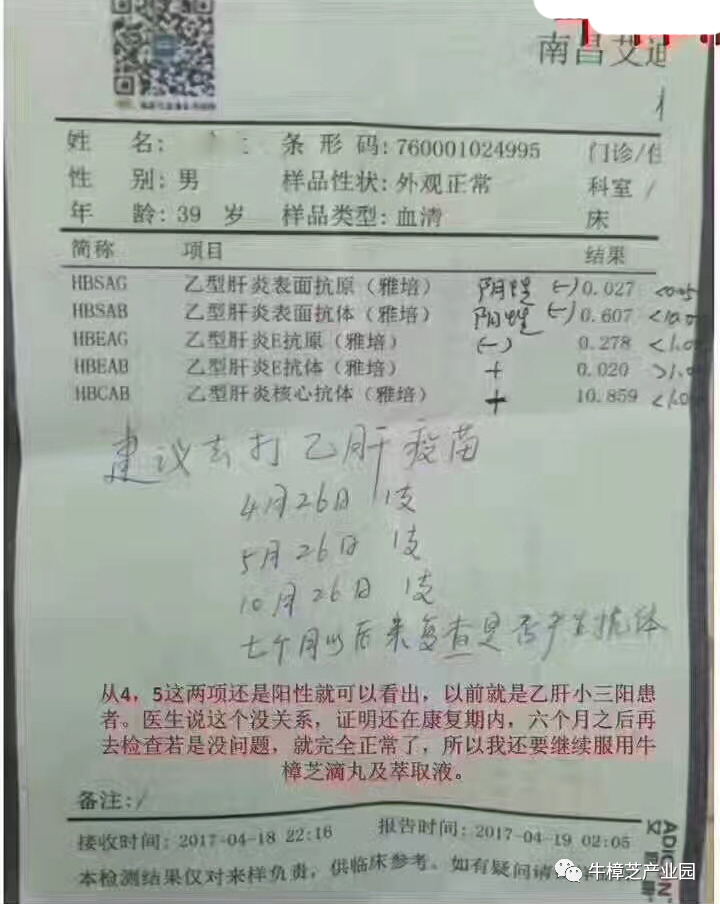 南昌艾迪
姓 名: 条形码:760001024995 门诊/住
性 别:男 样品性状:外观正常 科室 /
年 龄:39 岁 样品类型:血清 床
简称 项目 结果
HBSAG 乙型肝炎表面抗原（雅培） 阴性 (-) 0.027 <0.05
HBSAB 乙型肝炎表面抗体（雅培） 阴性 (-) 0.607 <10.0
HBEAG 乙型肝炎E抗原（雅培） (-) 0.278 <1.0
HBEAB 乙型肝炎E抗体（雅培） + 0.020 >1.0
HBCAB 乙型肝炎核心抗体（雅培） + 10.859 <1.0
建议去打乙肝疫苗
4月26日 1支
5月26日 1支
10月26日 1支
七个月以后来复查是否产生抗体
从4，5这两项还是阳性就可以看出，以前就是乙肝小三阳患
者。医生说这个没关系，证明还在康复期内，六个月之后再
去检查若是没问题，就完全正常了，所以我还要继续服用牛
樟芝滴丸及萃取液。
备注:/
接收时间: 2017-04-18 22:16 报告时间: 2017-04-19 02:05
本检测结果仅对来样负责，供临床参考。如有疑问请
ADICON
牛樟芝产业园